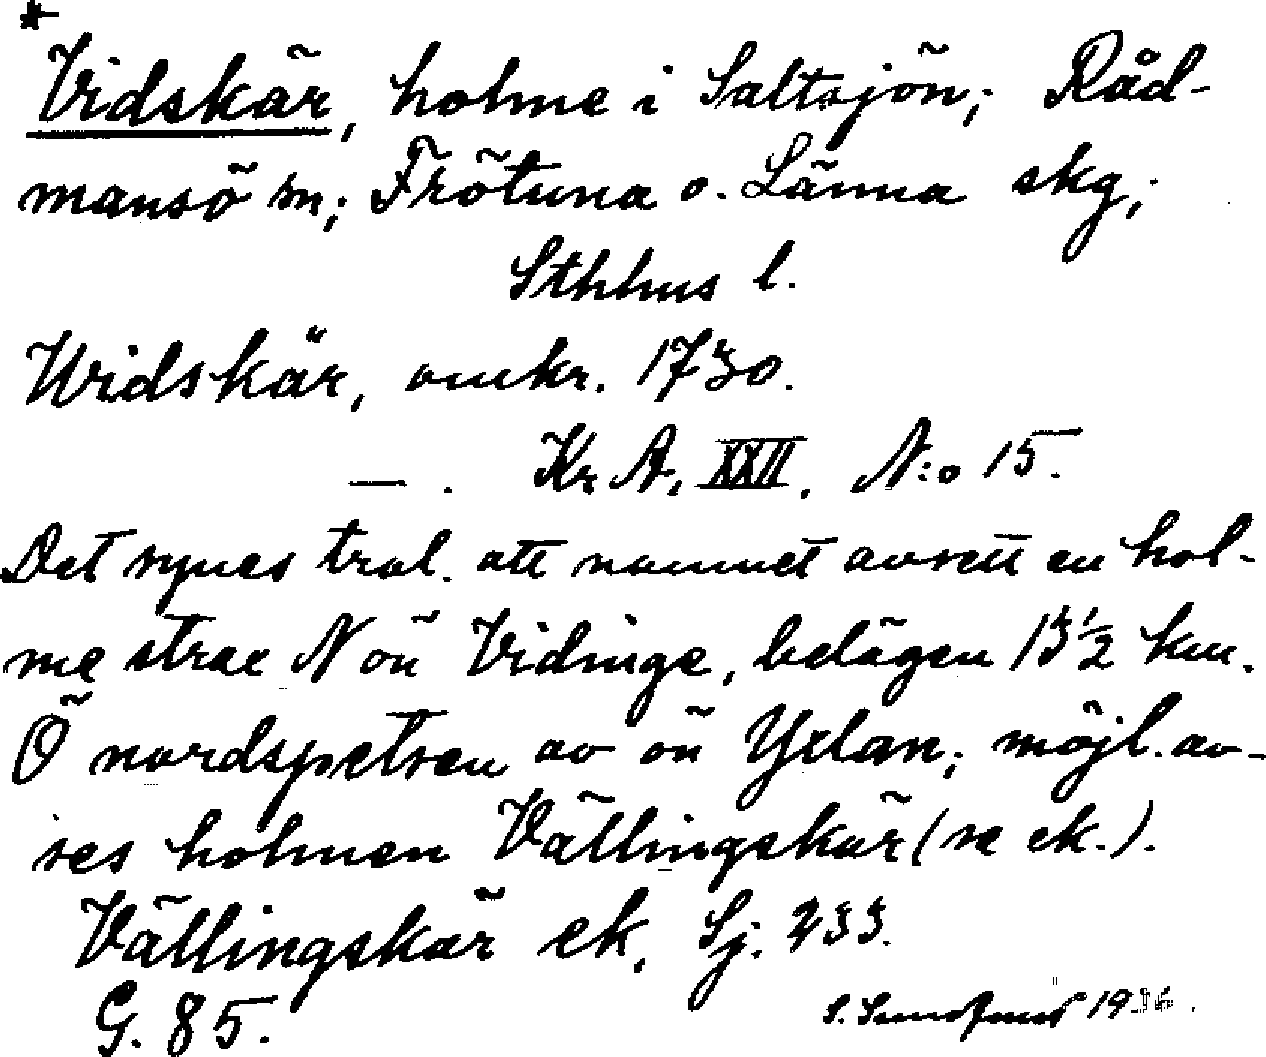 *
Vidskär, holme i Saltsjön; Råd-
mansö sn; Frötuna o. Länna skg;
Sthhus l.
Widskär, omkr. 1730.
— . Kr A, XXII, N:o 15.
Det synes trol. att namnet avsett en hol-
me strax N ön Vidinge, belägen 13 1/2 km.
Ö nordspetsen av ön Yxlan; möjl. av-
ses holmen Vällingskär (se ek.).
Vällingskär ek, Sj. 233.
G. 85.
S. 19